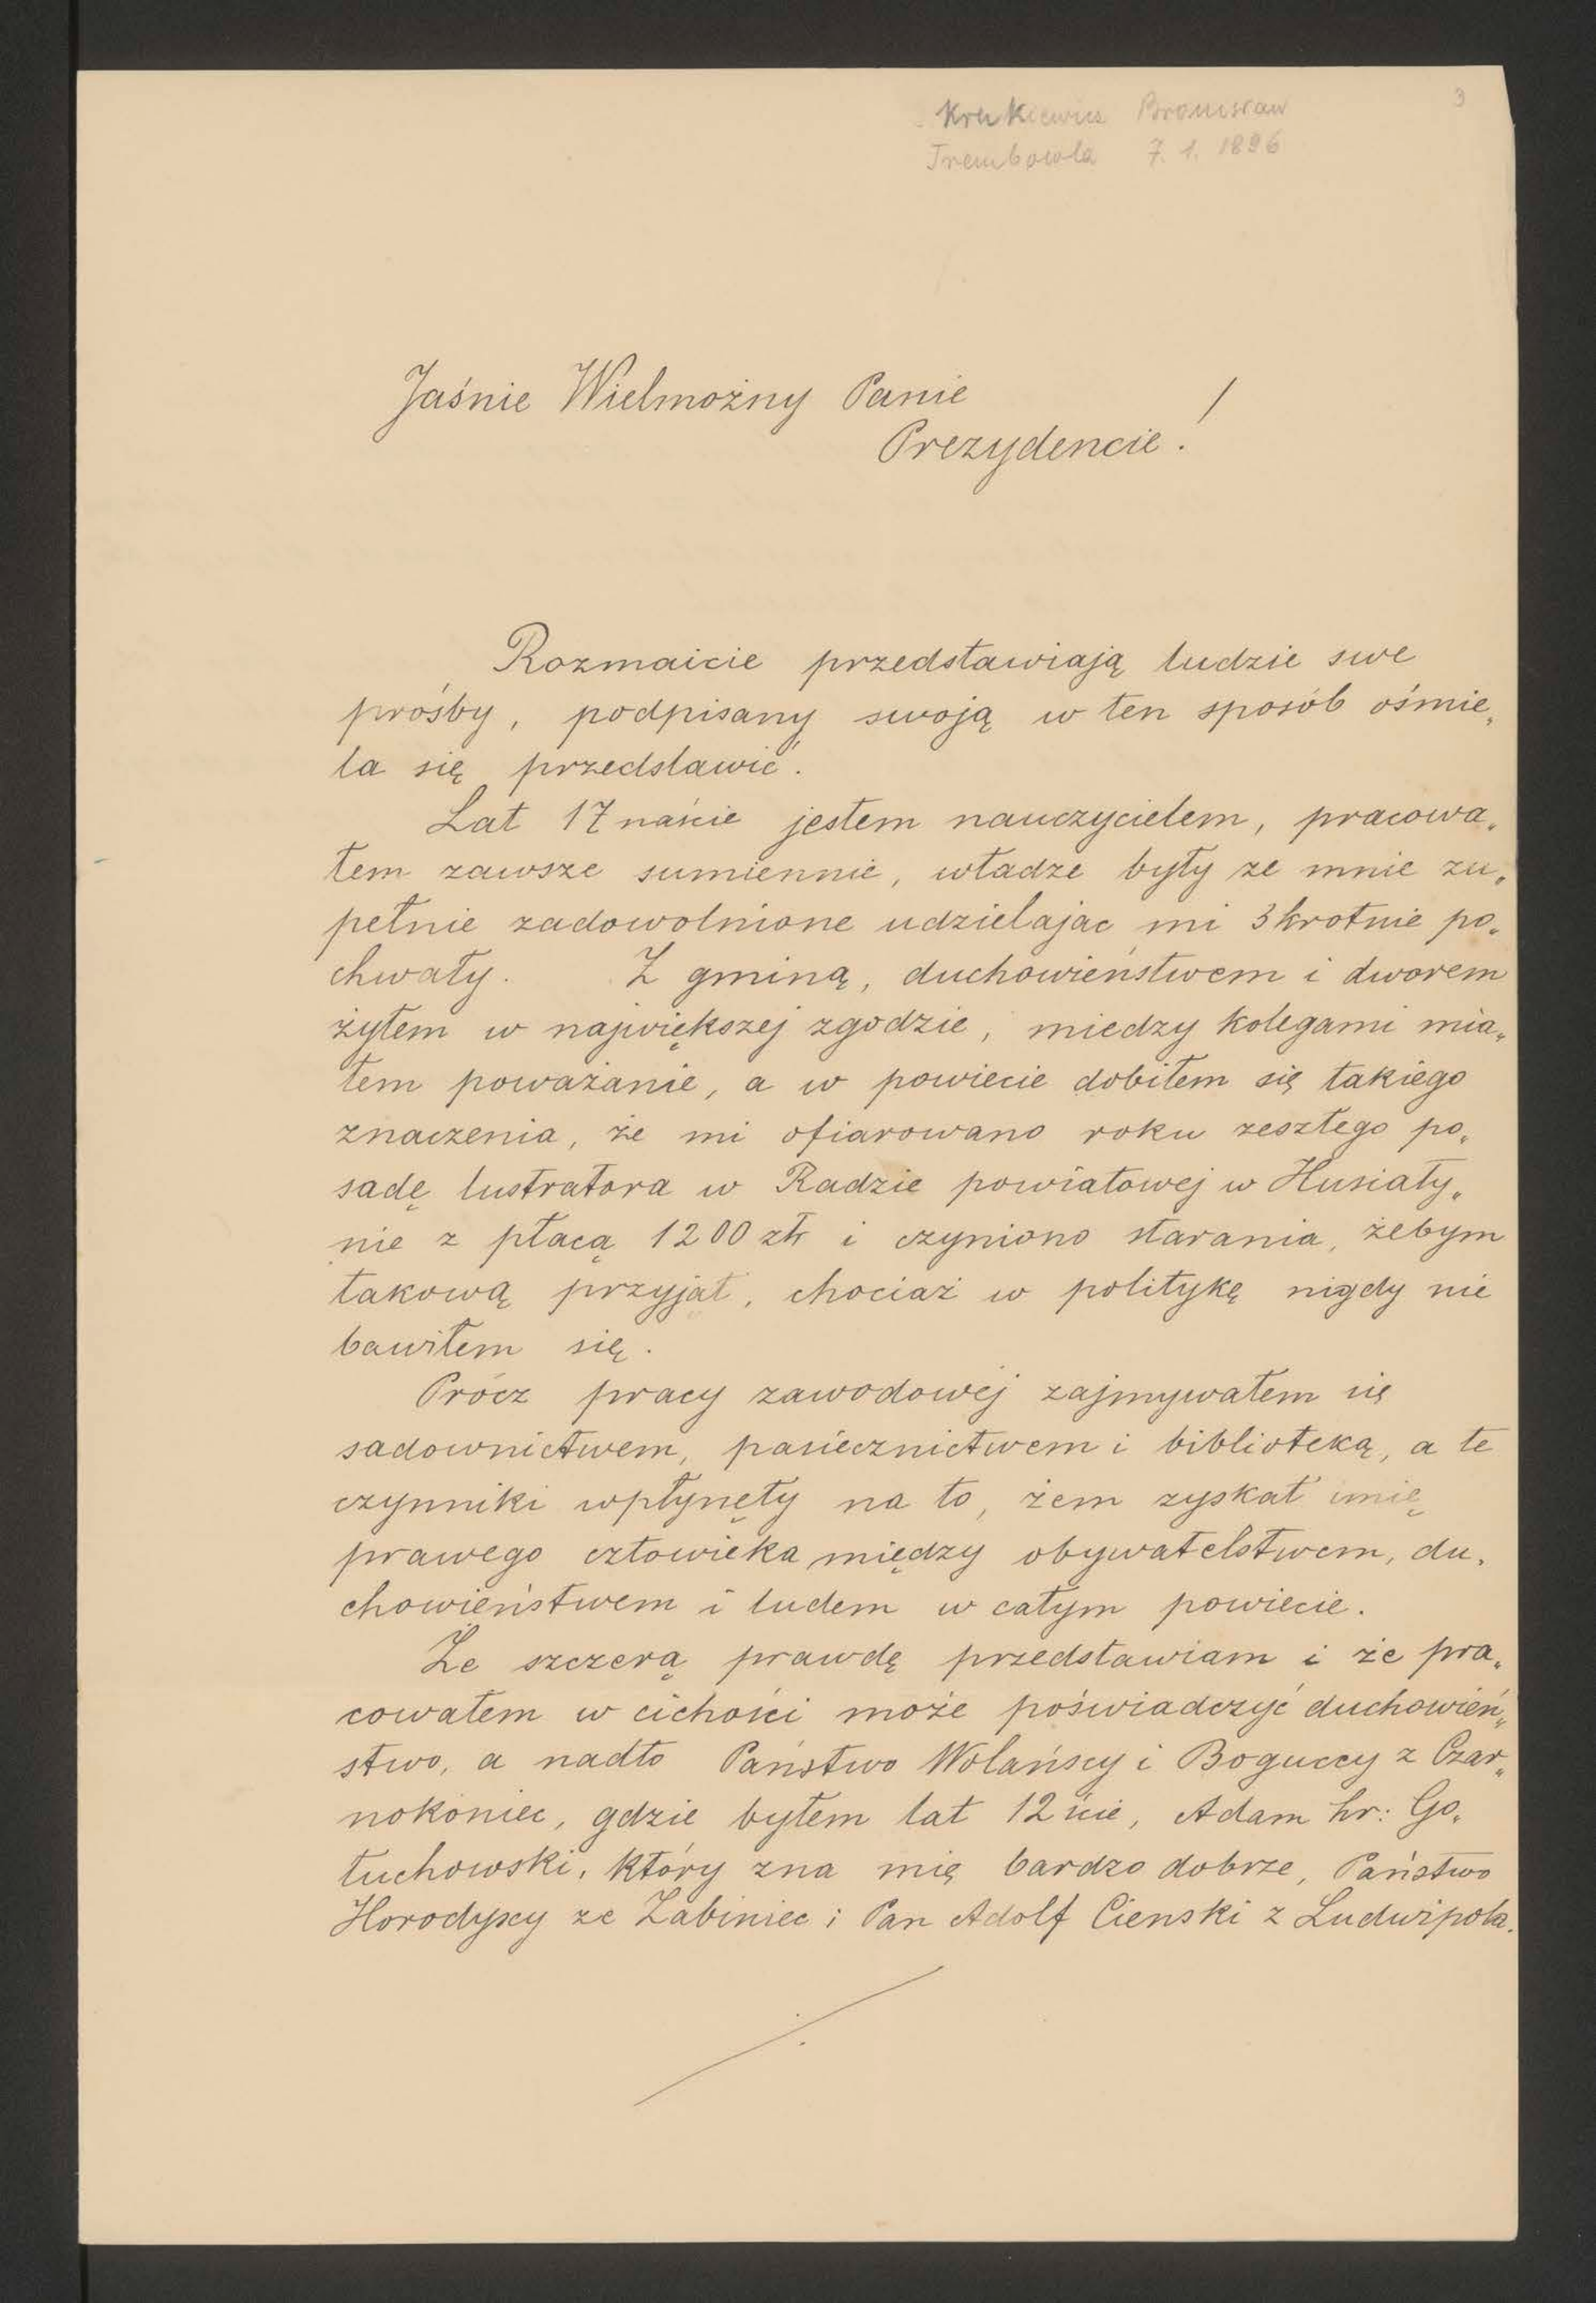 3
Krukiewicz Bronisław
Trembowla 7. 1. 1896
Jaśnie Wielmożny Panie
Prezydencie!
Rozmaicie przedstawiają ludzie swe
prośby, podpisany swoją w ten sposób ośmie„
la się przedstawić.
Lat 17naście jestem nauczycielem, pracowa„
łem zawsze sumiennie, władze były ze mnie zu„
pełnie zadowolnione udzielając mi 3krotnie po„
chwały. Z gminą, duchowieństwem i dworem
żyłem w największej zgodzie, miedzy kolegami mia„
łem poważanie, a w powiecie dobiłem się takiego
znaczenia, że mi ofiarowano roku zeszłego po„
sadę lustratora w Radzie powiatowej w Husiaty„
nie z płacą 1200 zł i czyniono starania, żebym
takową przyjął, chociaż w politykę nigdy nie
bawiłem się.
Prócz pracy zawodowej zajmywałem się
sadownictwem, pasiecznictwem i biblioteką, a te
czynniki wpłynęły na to, żem zyskał imię
prawego człowieka między obywatelstwem, du„
chowieństwem i ludem w całym powiecie.
Że szczerą prawdę przedstawiam i że pra„
cowałem w cichości może poświadczyć duchowień„
stwo, a nadto Państwo Wolańscy i Boguccy z Czar„
nokoniec, gdzie byłem lat 12ście, Adam hr: Go„
łuchowski, który zna mię bardzo dobrze, Państwo
Horodyscy ze Żabiniec i Pan Adolf Cienski z Ludwipola.